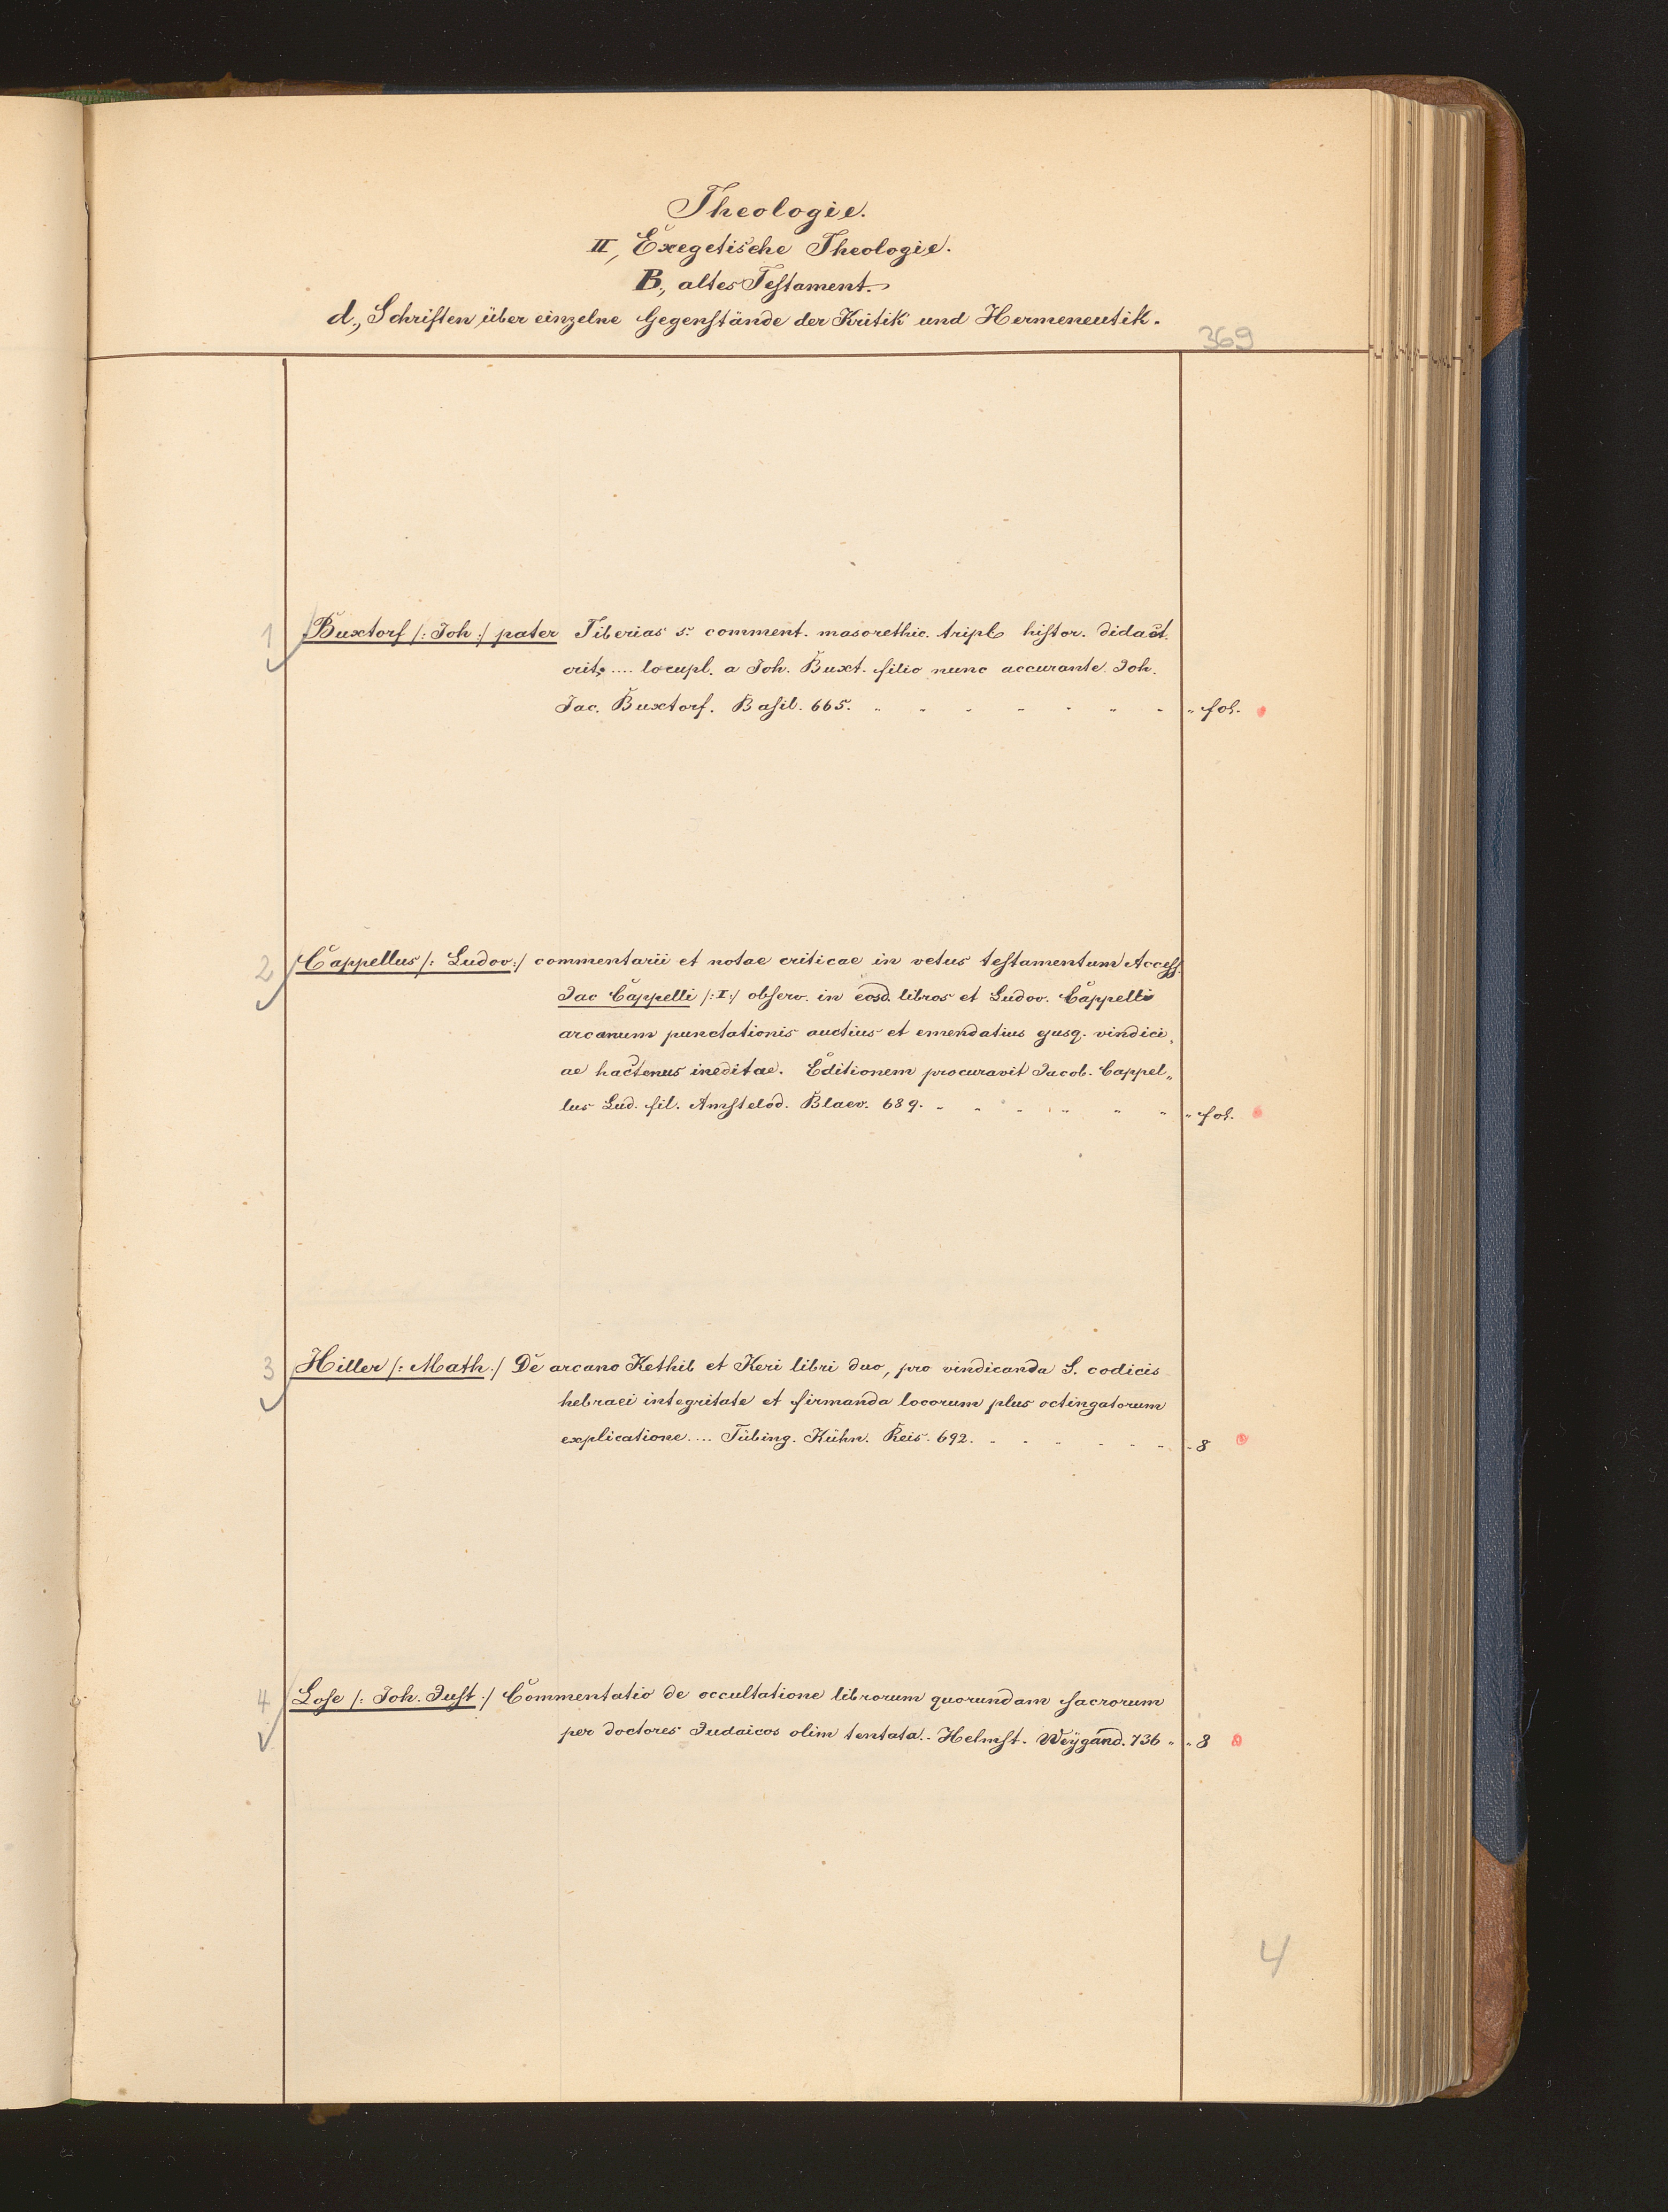 Theologie.
II, Exegetische Theologie.
B., altes Testament.
d., Schriften über einzelne Gegenstände der Kritik und Hermeneutik.
369
1 Buxtorf /: Joh :/ pater Tiberias s. comment. masorethic. tripl histor. didact.
crit. .... locupl. a Joh. Buxt. filio nunc accurante Joh.
Jac. Buxtorf. Basil. 665. " " " " " " " " fol.
2 Cappellus /: Ludov :/ commentarii et notae criticae in vetus testamentum Access.
Jac Cappelli /: I :/ observ. in eosd. libros et Ludov. Cappelli
arcanum punctationis auctius et emendatius ejusq. vindici„
ae hactenus ineditae. Editionem procuravit Jacob. Cappel„
lus Lud. fil. Amstelod. Blaev. 689. " " " " " " " fol.
3 Hiller /: Math :/ De arcano Kethib et Keri libri duo, pro vindicanda S. codicis
hebraei integritate et firmanda locorum plus octingatorum
explicatione .... Tübing. Kühn. Reis. 692. " " " " " " " 8
4 Lose /: Joh. Just :/ Commentatio de occultatione librorum quorundam sacrorum
per doctores Judaicos olim tentata.- Helmst. Weÿgand. 736 " " 8
4